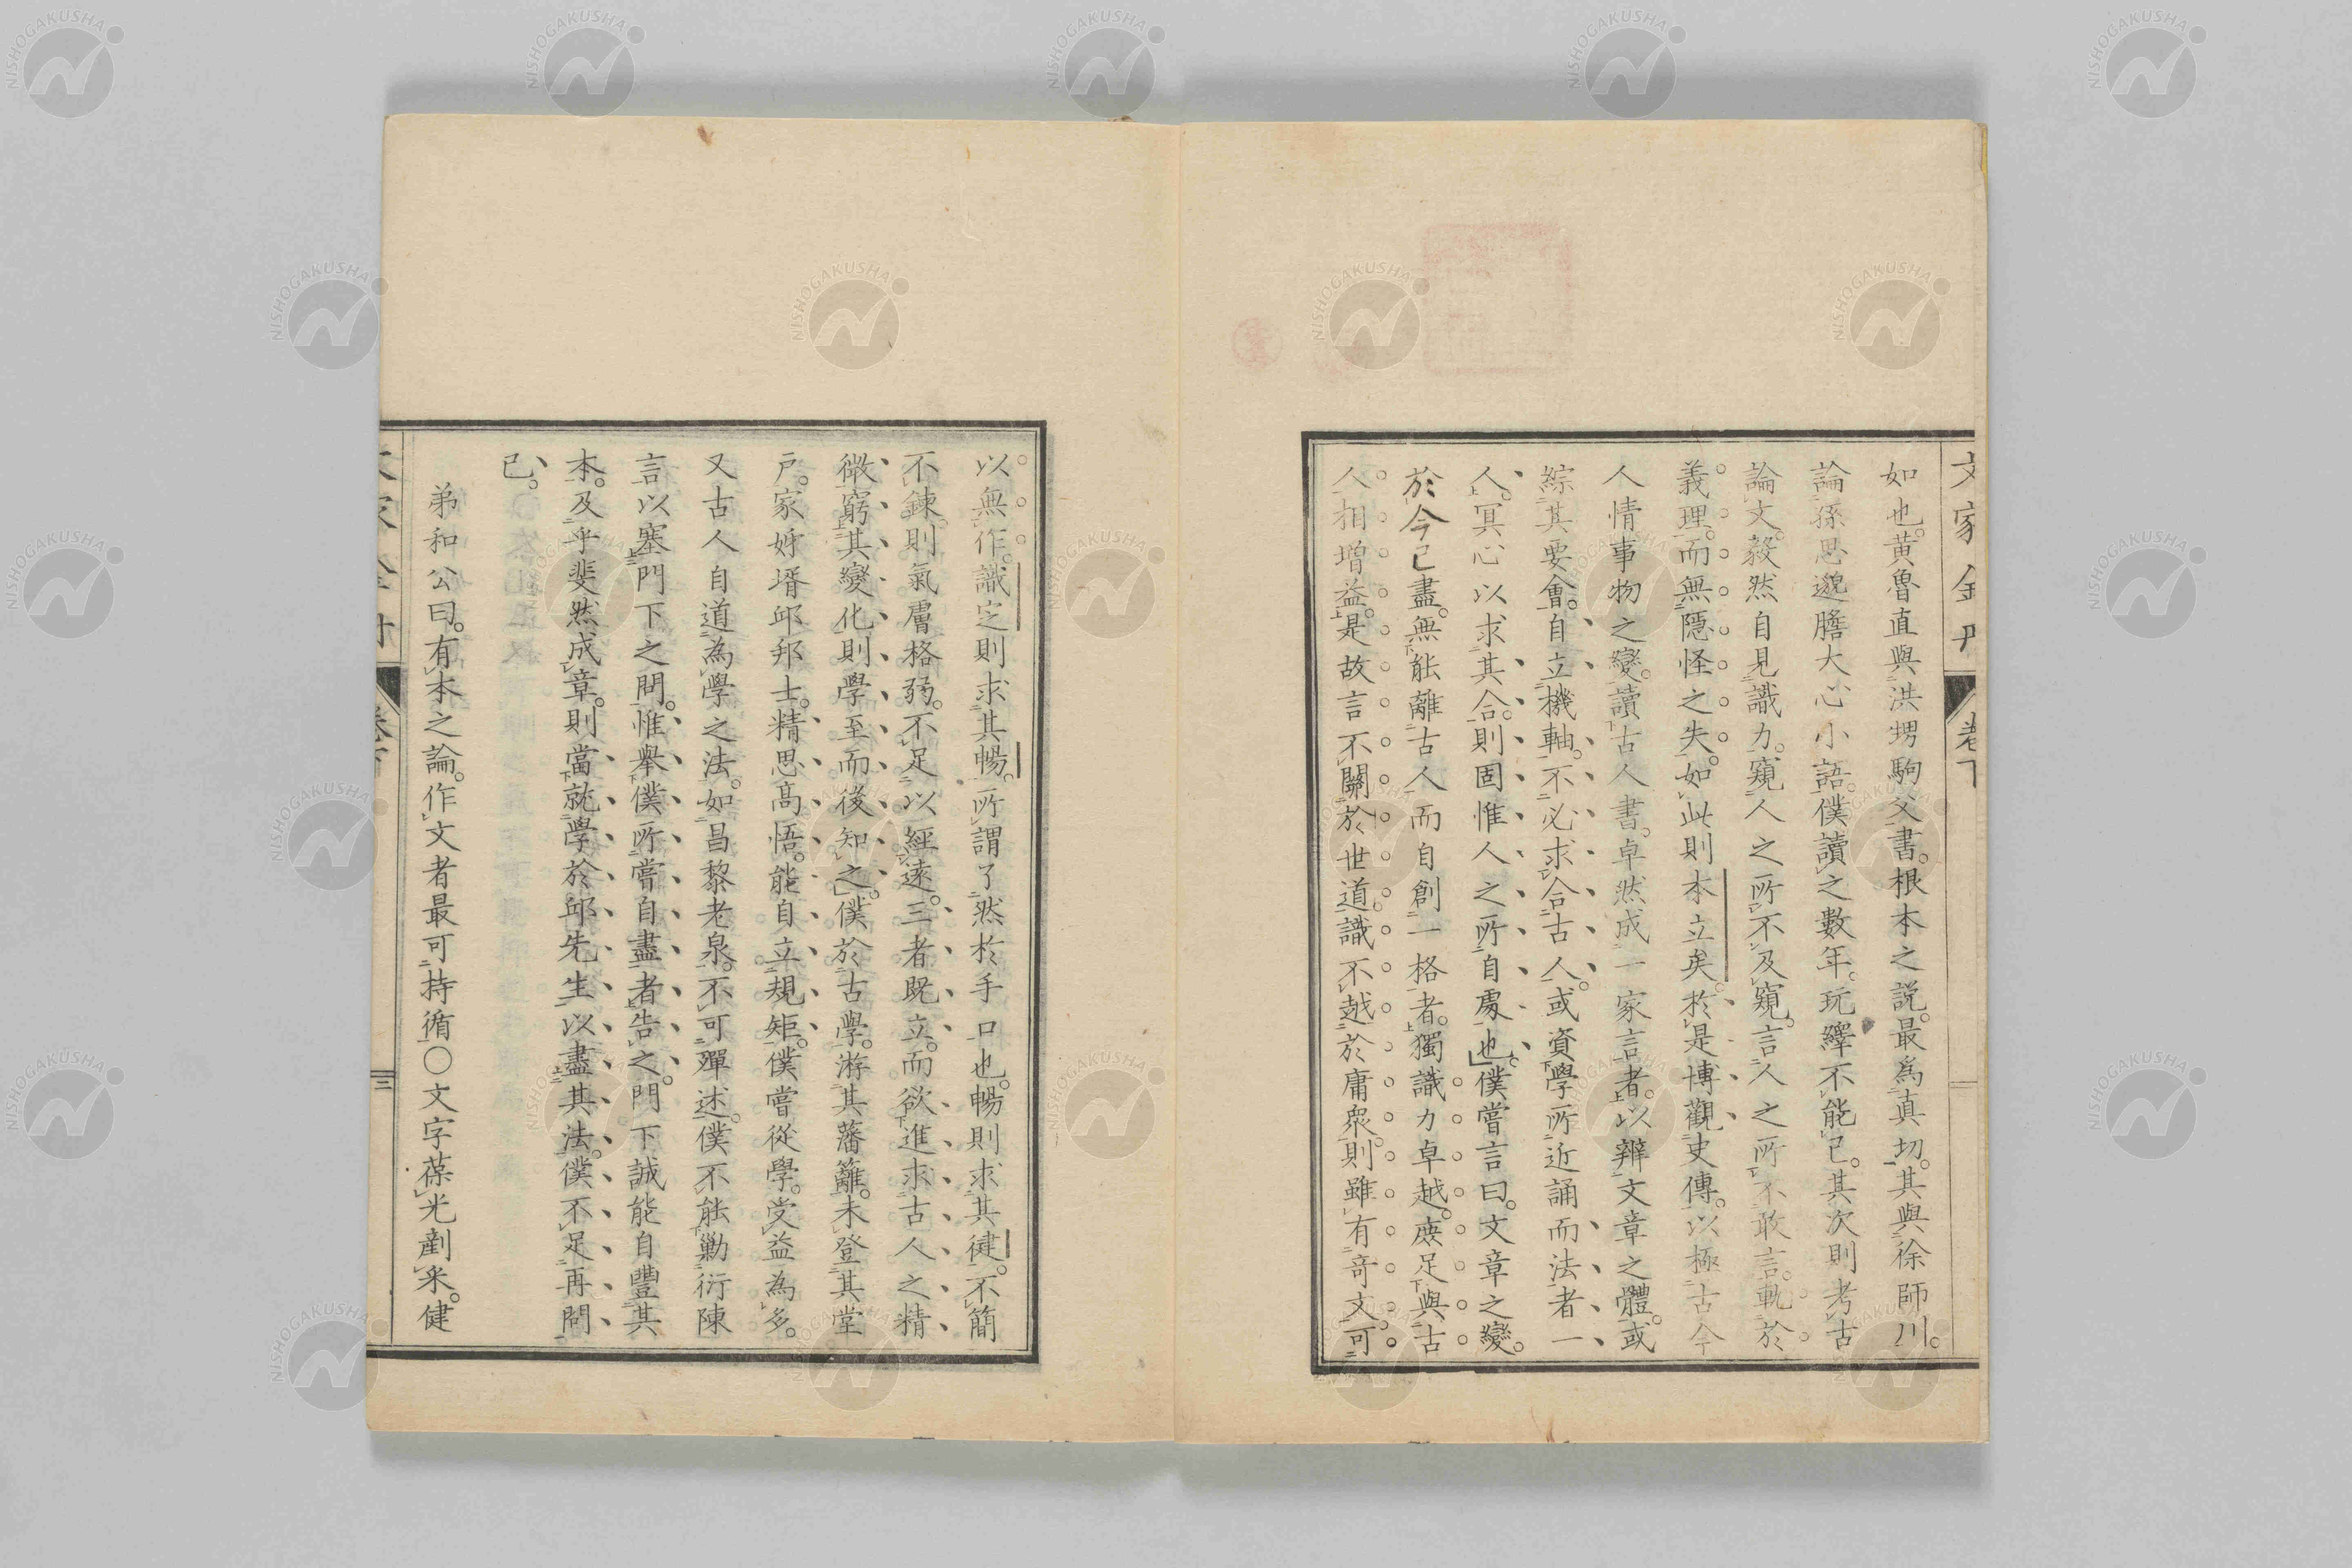 文家金丹 卷下
如也。黄魯直與洪甥駒父書。根本之説。最爲真切。其與徐師川。
論孫思邈膽大心小語。僕讀之數年。玩繹不能已。其次則考古
論文。毅然自見識力。窺人之所不及窺。言人之所不敢言。軌於
義理。而無隱怪之失。如此則本立矣。於是博觀史傳。以極古今
人情事物之變。讀古人書。卓然成一家言者。以辨文章之體。或
綜其要會。自立機軸。不必求合古人。或資學所近誦而法者一
人。冥心以求其合。則固惟人之所自處也。僕嘗言曰。文章之變。
於今已盡。無能離古人而自創一格者。獨識力卓越。庶足與古
人相增益。是故言不關於世道。識不越於庸衆。則雖有奇文。可
以無作。識定則求其暢。所謂了然於手口也。暢則求其健。不簡
不鍊。則氣膚格弱。不足以經遠。三者既立。而欲進求古人之精
微。窮其變化。則學至而後知之。僕於古學。游其藩籬。未登其堂
戸。家姊壻邱邦士。精思高悟。能自立規矩。僕嘗從學。受益為多。
又古人自道為學之法。如昌黎老泉。不可殫述。僕不能勦衍陳
言以塞門下之問。惟舉僕所嘗自盡者告之。門下誠能自豐其
本。及乎斐然成章。則當就學於邱先生。以盡其法。僕不足再問
已。
弟和公曰。有本之論。作文者最可持循〇文字葆光剷采。健
卷下 三